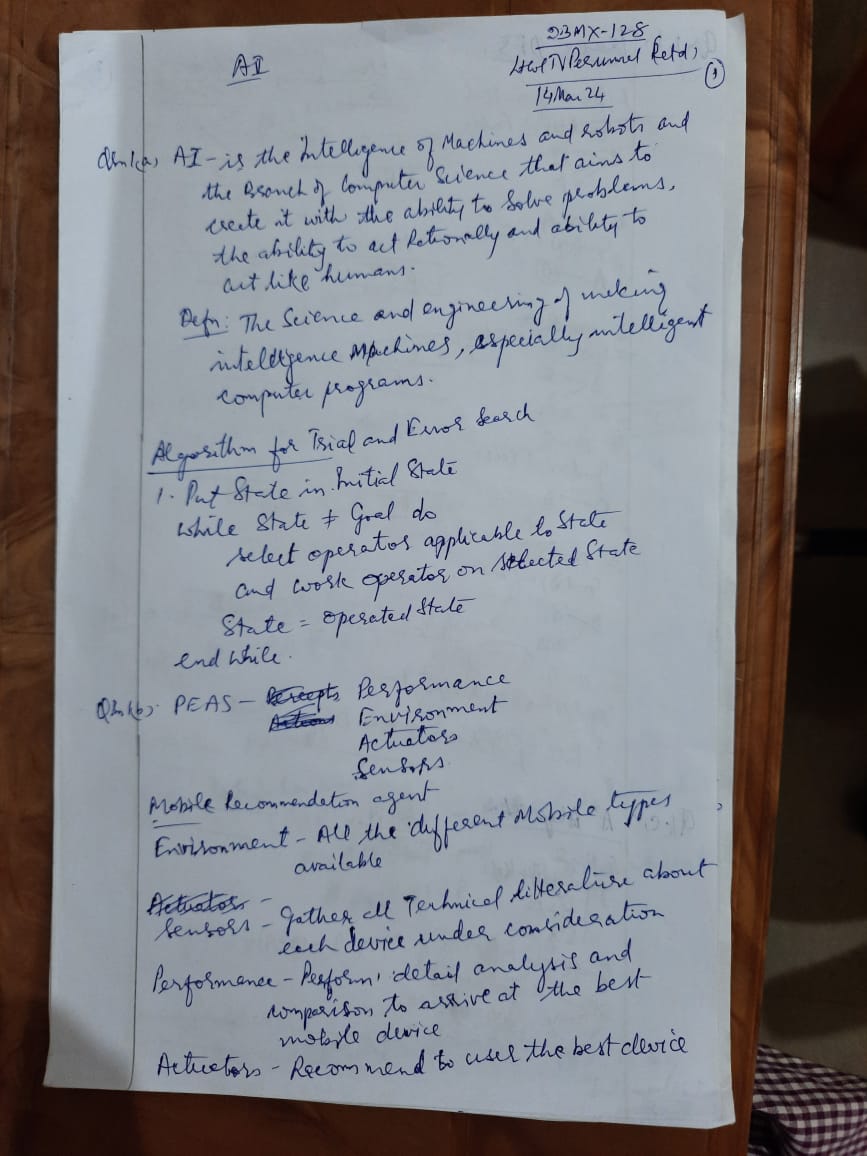 AI
23MX-128
Retd,
14 Mar 24
1
Qn 1(a) AI - is the Intelligence of Machines and robots and
the Branch of Computer Science that aims to
create it with the ability to Solve problems,
the ability to act Rationally and ability to
act like humans.
Defn: The Science and engineering of making
intelligence Machines, especially intelligent
computer programs.
Algorithm for Trial and Error Search
1. Put State in Initial State
while State ≠ Goal do
select operator applicable to State
and work operator on selected State
State = operated State
end while.
Qn 1(b). PEAS - Percepts Performance
Actions Environment
Actuators
Sensors
Mobile Recommendation agent
Environment - All the different Mobile types
available
Actuators -
Sensors - Gather all Technical litterature about
each device under consideration
Performance - Perform detail analysis and
comparison to arrive at the best
mobile device
Actuators - Recommend to user the best device